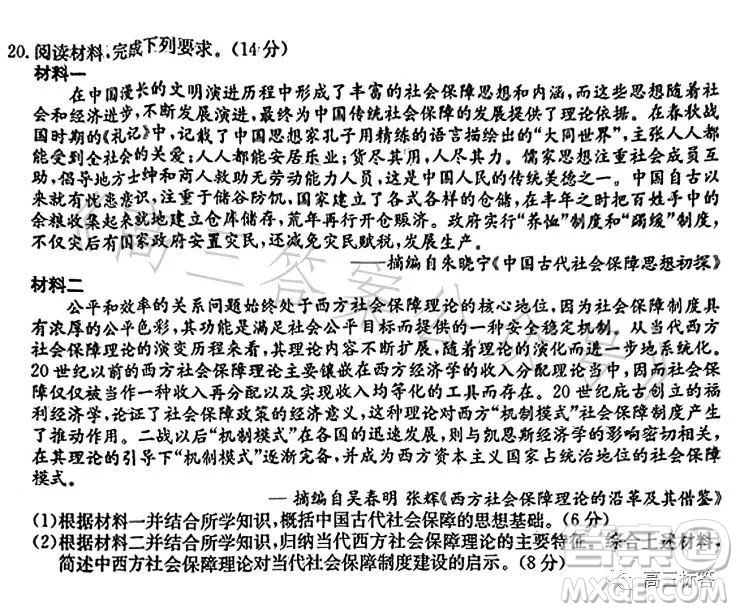 20. 阅读材料,完成下列要求。(14分)
材料一
在中国漫长的文明演进历程中形成了丰富的社会保障思想和内涵,而这些思想随着社
会和经济进步,不断发展演进,最终为中国传统社会保障的发展提供了理论依据。在春秋战
国时期的《礼记》中,记载了中国思想家孔子用精练的语言描绘出的“大同世界”,主张人人都
能受到全社会的关爱;人人都能安居乐业;货尽其用,人尽其力。儒家思想注重社会成员互
助,倡导地方士绅和商人救助无劳动能力人员,这是中国人民的传统美德之一。中国自古以
来就有忧患意识,注重于储谷防饥,国家建立了各式各样的仓储,在丰年之时把百姓手中的
余粮收集起来或地建立仓库储存,荒年再行开仓赈济。政府实行“养恤”制度和“蠲缓”制度,
不仅灾后有国家政府安置灾民,还减免灾民赋税,发展生产。
——摘编自朱晓宁《中国古代社会保障思想初探》
材料二
公平和效率的关系问题始终处于西方社会保障理论的核心地位,因为社会保障制度具
有浓厚的公平色彩,其功能是满足社会公平目标而提供的一种安全稳定机制。从当代西方
社会保障理论的演变历程来看,其理论内容不断扩展,随着理论的演化而进一步地系统化。
20世纪以前的西方社会保障理论主要镶嵌在西方经济学的收入分配理论当中,因而社会保
障仅仅被当作一种收入再分配以及实现收入均等化的工具而存在。20世纪庇古创立的福
利经济学,论证了社会保障政策的经济意义,这种理论对西方“机制模式”社会保障制度产生
了推动作用。二战以后“机制模式”在各国的迅速发展,则与凯恩斯经济学的影响密切相关,
在其理论的引导下“机制模式”逐渐完备,并成为西方资本主义国家占统治地位的社会保障
模式。
—摘编自吴春明 张辉《西方社会保障理论的沿革及其借鉴》
(1)根据材料一并结合所学知识,概括中国古代社会保障的思想基础。(6分)
(2)根据材料二并结合所学知识,归纳当代西方社会保障理论的主要特征。综合上述材料,
简述中西方社会保障理论对当代社会保障制度建设的启示。(8分)
《高三答案公众号》
答案圈
MXQE.COM
高三标答